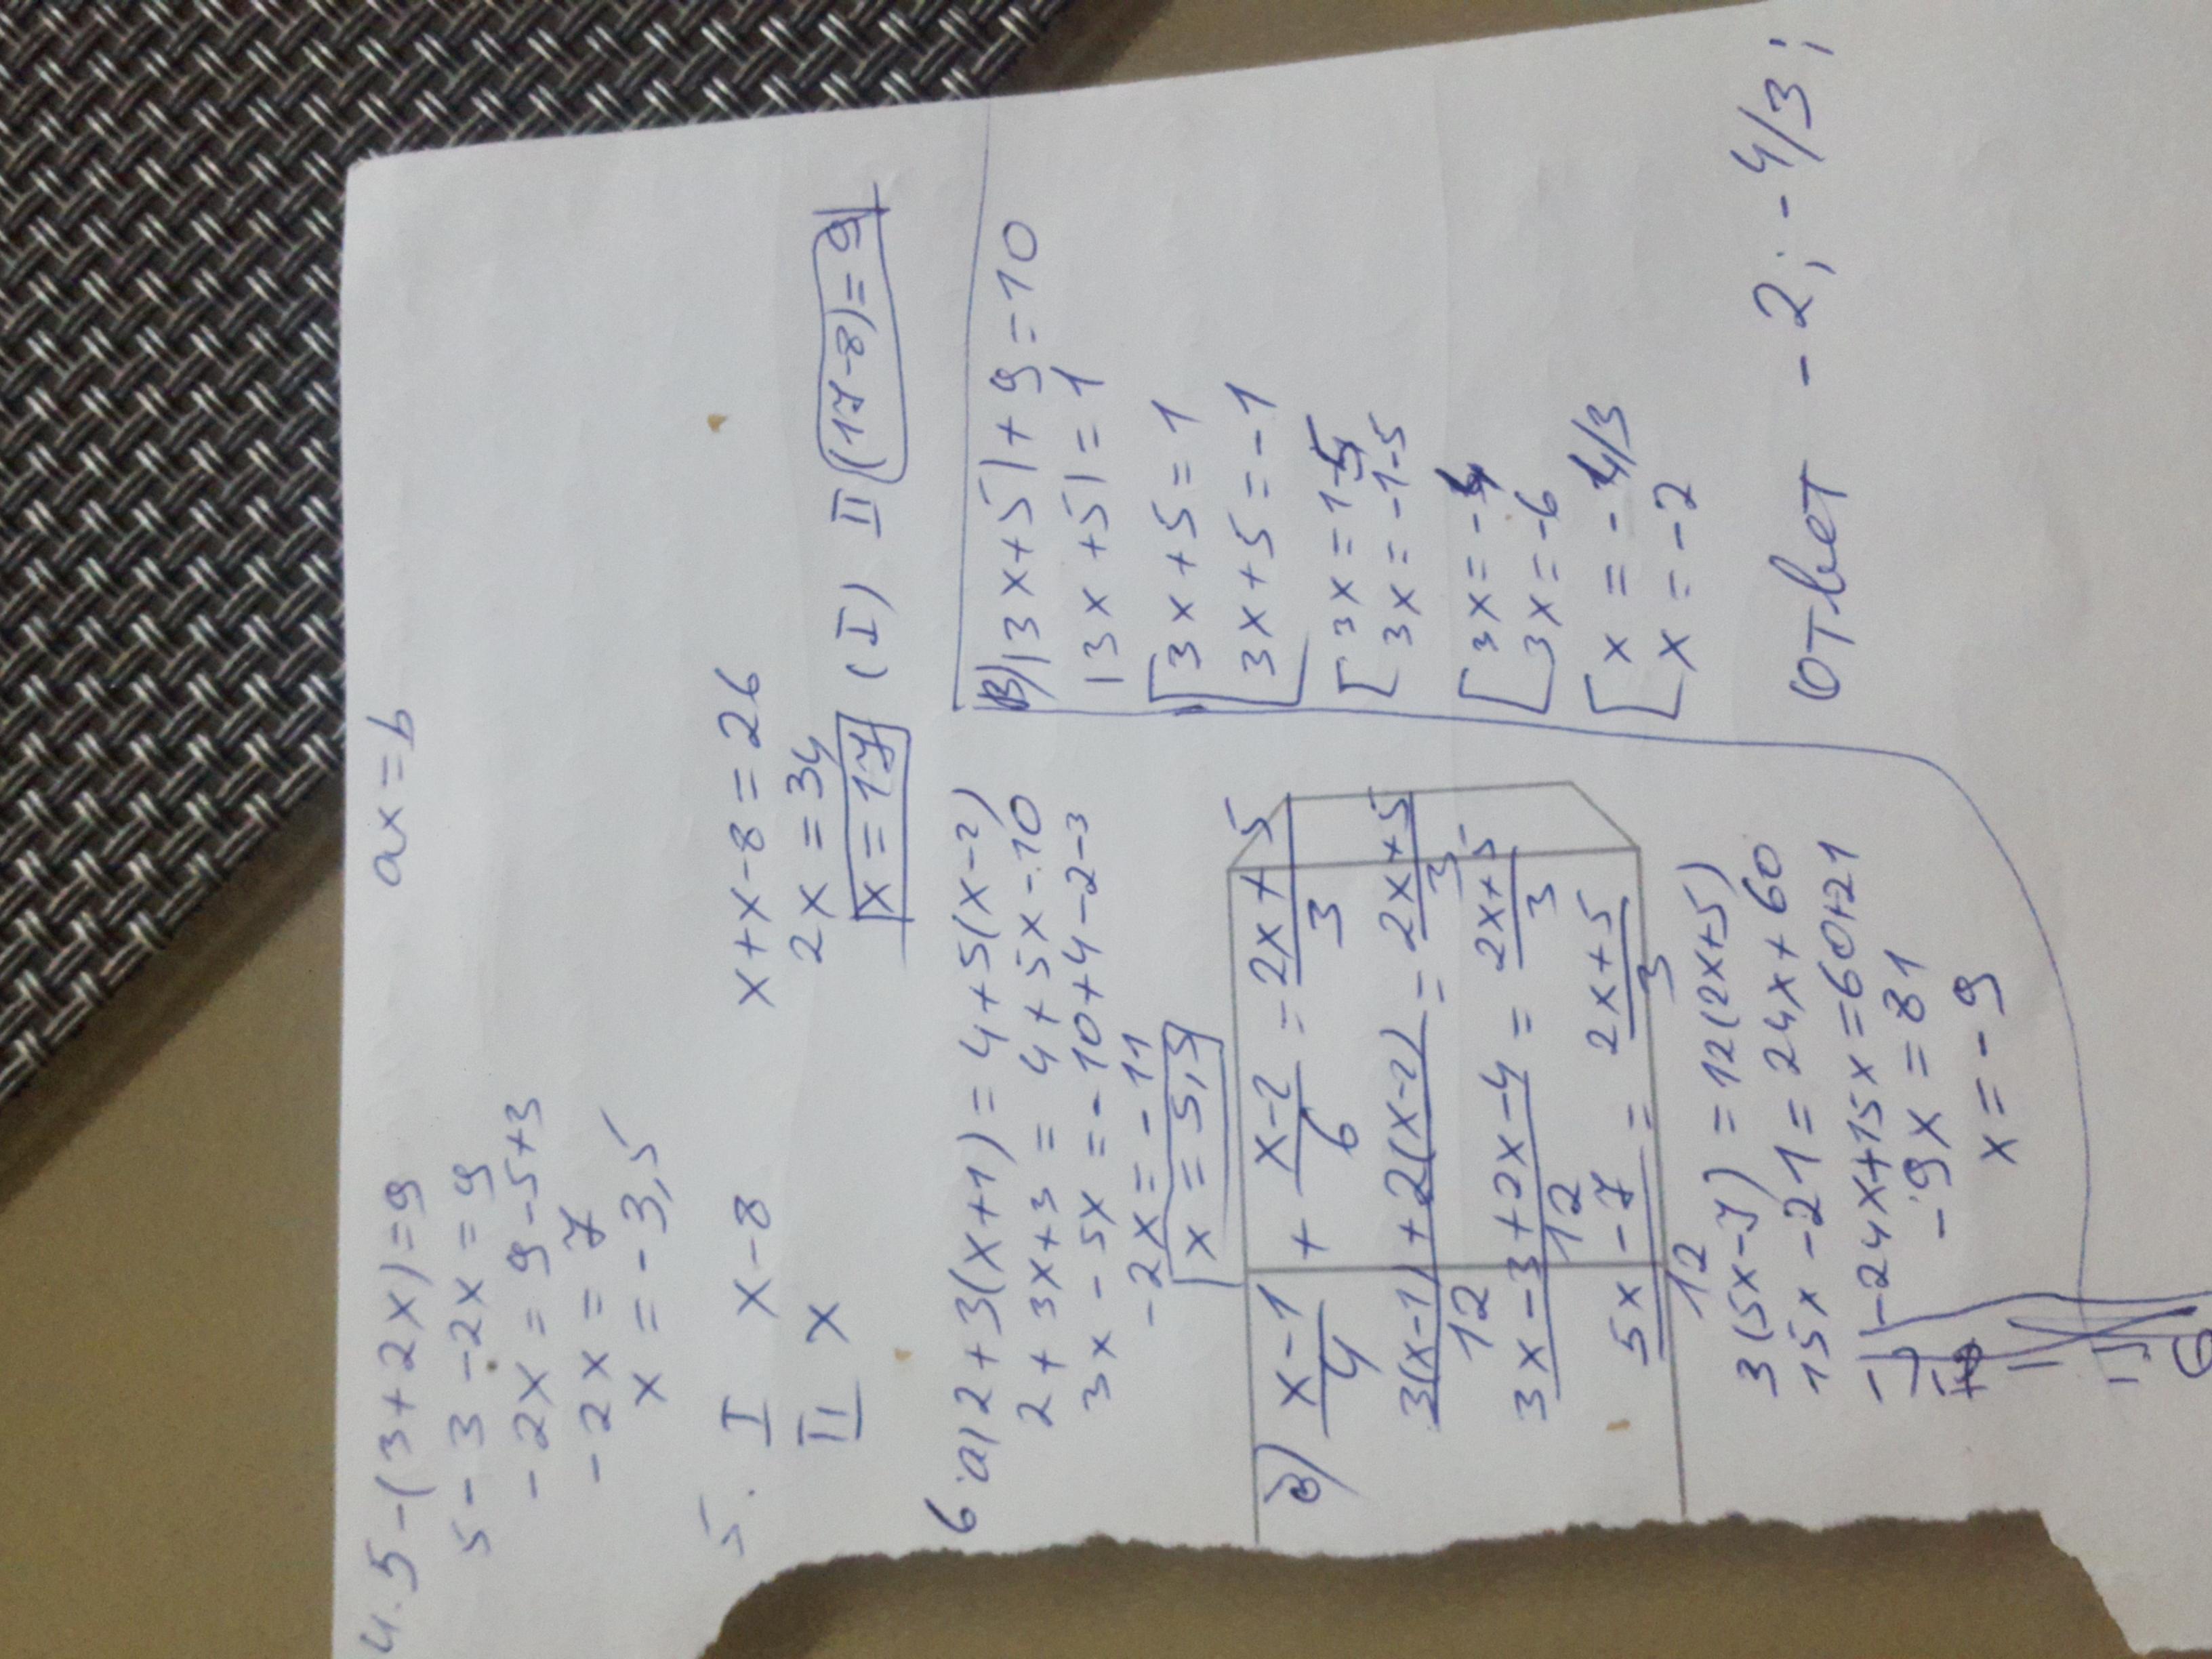 4. 5-(3+2x)=9 ax=b
5-3-2x=9
-2x=9-5+3
-2x=7
x=-3,5
5. I x-8 x+x-8=26
II x 2x=34
x=17 (I) II (17-8)=9
6 a) 2+3(x+1)=4+5(x-2)
2+3x+3=4+5x-10
3x-5x=-10+4-2-3
-2x=-11
x=5,5
б) x-1/4 + x-2/6 = 2x+5/3
3(x-1)+2(x-2)/12 = 2x+5/3
3x-3+2x-4/12 = 2x+5/3
5x-7/12 = 2x+5/3
3(5x-7)=12(2x+5)
15x-21=24x+60
-24x+15x=60+21
-9x=81
x=-9
в) |3x+5|+9=10
|3x+5|=1
[3x+5=1
3x+5=-1
[3x=1-5
3x=-1-5
[3x=-4
3x=-6
[x=-4/3
x=-2
Ответ -2; -4/3;